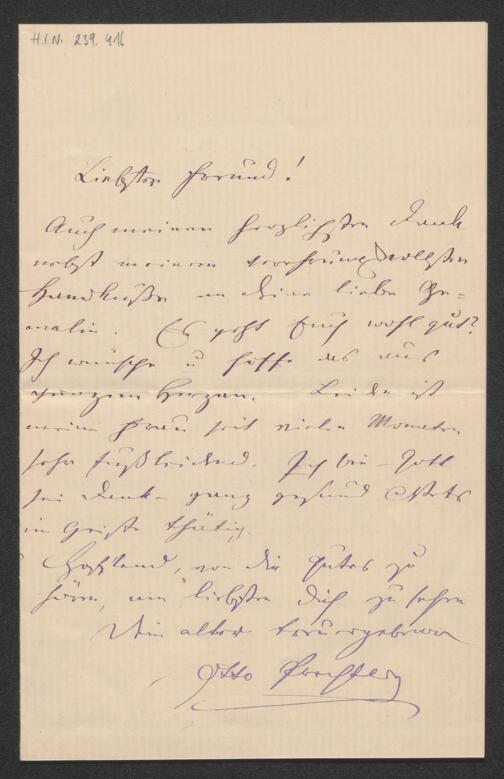 H.I.N. 239.416
Liebster Freund!
Auch meinen herzlichsten Dank
nebst meinem verehrungsvollsten
Handkuße an Deine liebe Ge-
malin. Es geht Euch wohl gut?
Ich wünsche u hoffe das aus
ganzem Herzen. Leider ist
meine Frau seit vielen Monaten
sehr fußleidend. Ich bin – Gott
sei Dank – ganz gesund stets
im Geiste thätig.
Hoffend, von Dir Gutes zu
hören, am liebsten Dich zu sehen
Dein alter treuergebener
Otto Prechtler